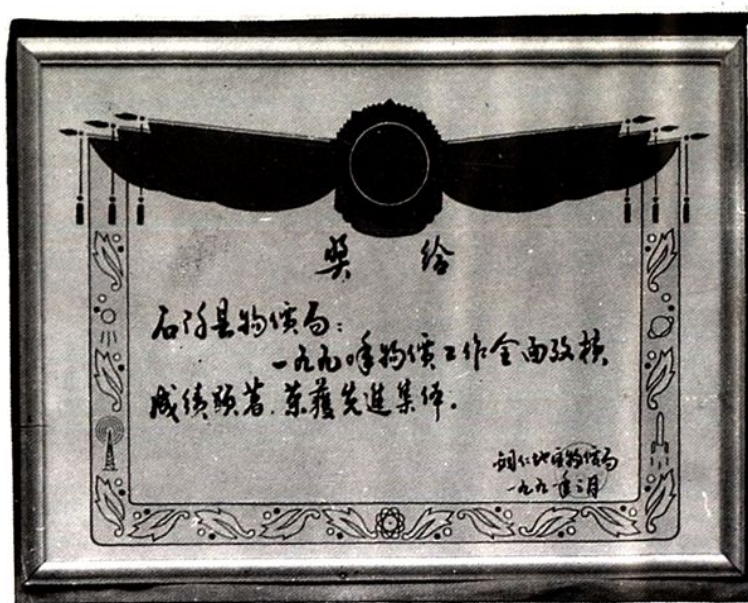 奖给
石阡县物價局：
一九九〇年物價工作全面考核
成绩顕著，荣獲先進集体。
铜仁地区物價局
一九九一年二月